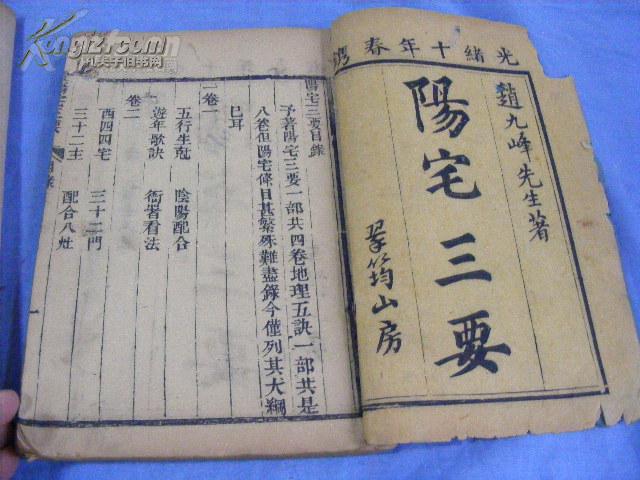 光緒十年春
趙九峰先生著
陽宅三要
翠筠山房
陽宅三要目錄
予著陽宅三要一部共四卷地理五訣一部共是
八卷但陽宅條目甚繁殊難盡錄今僅列其大綱
已耳
卷一
五行生剋 陰陽配合
遊年歌訣 衙署看法
卷二
西四四宅 三十二門
三十二主 配合八灶
目錄
一
kongfz.com
孔夫子旧书网